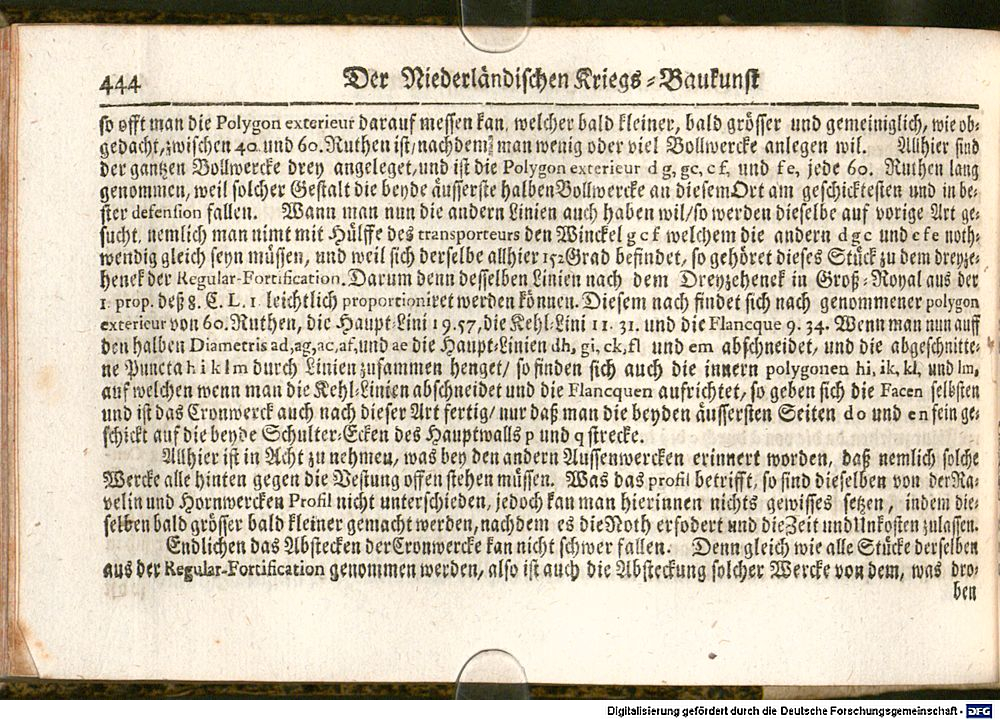 444
Der Niederländischen Kriegs-Baukunst
so offt man die Polygon exterieur darauf messen kan, welcher bald kleiner, bald grösser und gemeiniglich, wie ob-
gedacht, zwischen 40. und 60. Ruthen ist/ nachdem man wenig oder viel Bollwercke anlegen wil. Allhier sind
der gantzen Bollwercke drey angeleget, und ist die Polygon exterieur d g, gc, c f, und f e, jede 60. Ruthen lang
genommen, weil solcher Gestalt die beyde äusserste halben Bollwercke an diesem Ort am geschicktesten und in be-
ster defension fallen. Wann man nun die andern Linien auch haben wil/ so werden dieselbe auf vorige Art ge-
sucht, nemlich man nimt mit Hülffe des transporteurs den Winckel g c f welchem die andern d g c und c f e noth-
wendig gleich seyn müssen, und weil sich derselbe allhier 152 Grad befindet, so gehöret dieses Stück zu dem dreyze-
henek der Regular-Fortification. Darum denn desselben Linien nach dem Dreyzehenek in Groß-Royal aus der
1. prop. deß 8. C. L. 1. leichtlich proportioniret werden können. Diesem nach findet sich nach genommener polygon
exterieur von 60. Ruthen, die Haupt-Lini 19. 57, die Kehl-Lini 11. 31. und die Flancque 9. 34. Wenn man nun auff
den halben Diametris ad, ag, ac, af, und ae die Haupt-Linien dh, gi, ck, fl und em abschneidet, und die abgeschnitte-
ne Puncta h i k l m durch Linien zusammen henget/ so finden sich auch die innern polygonen hi, ik, kl, und lm,
auf welchen wenn man die Kehl-Linien abschneidet und die Flancquen aufrichtet, so geben sich die Facen selbsten
und ist das Cronwerck auch nach dieser Art fertig/ nur daß man die beyden äussersten Seiten d o und e n fein ge-
schickt auf die beyde Schulter-Ecken des Hauptwalls p und q strecke.
Allhier ist in Acht zu nehmen, was bey den andern Aussenwercken erinnert worden, daß nemlich solche
Wercke alle hinten gegen die Vestung offen stehen müssen. Was das profil betrifft, so sind dieselben von der Ra-
velin und Hornwercken Profil nicht unterschieden, jedoch kan man hierinnen nichts gewisses setzen, indem die-
selben bald grösser bald kleiner gemacht werden, nachdem es die Noth erfodert und die Zeit und Unkosten zulassen.
Endlichen das Abstecken der Cronwercke kan nicht schwer fallen. Denn gleich wie alle Stücke derselben
aus der Regular-Fortification genommen werden, also ist auch die Absteckung solcher Wercke von dem, was dro-
ben
Digitalisierung gefördert durch die Deutsche Forschungsgemeinschaft - DFG